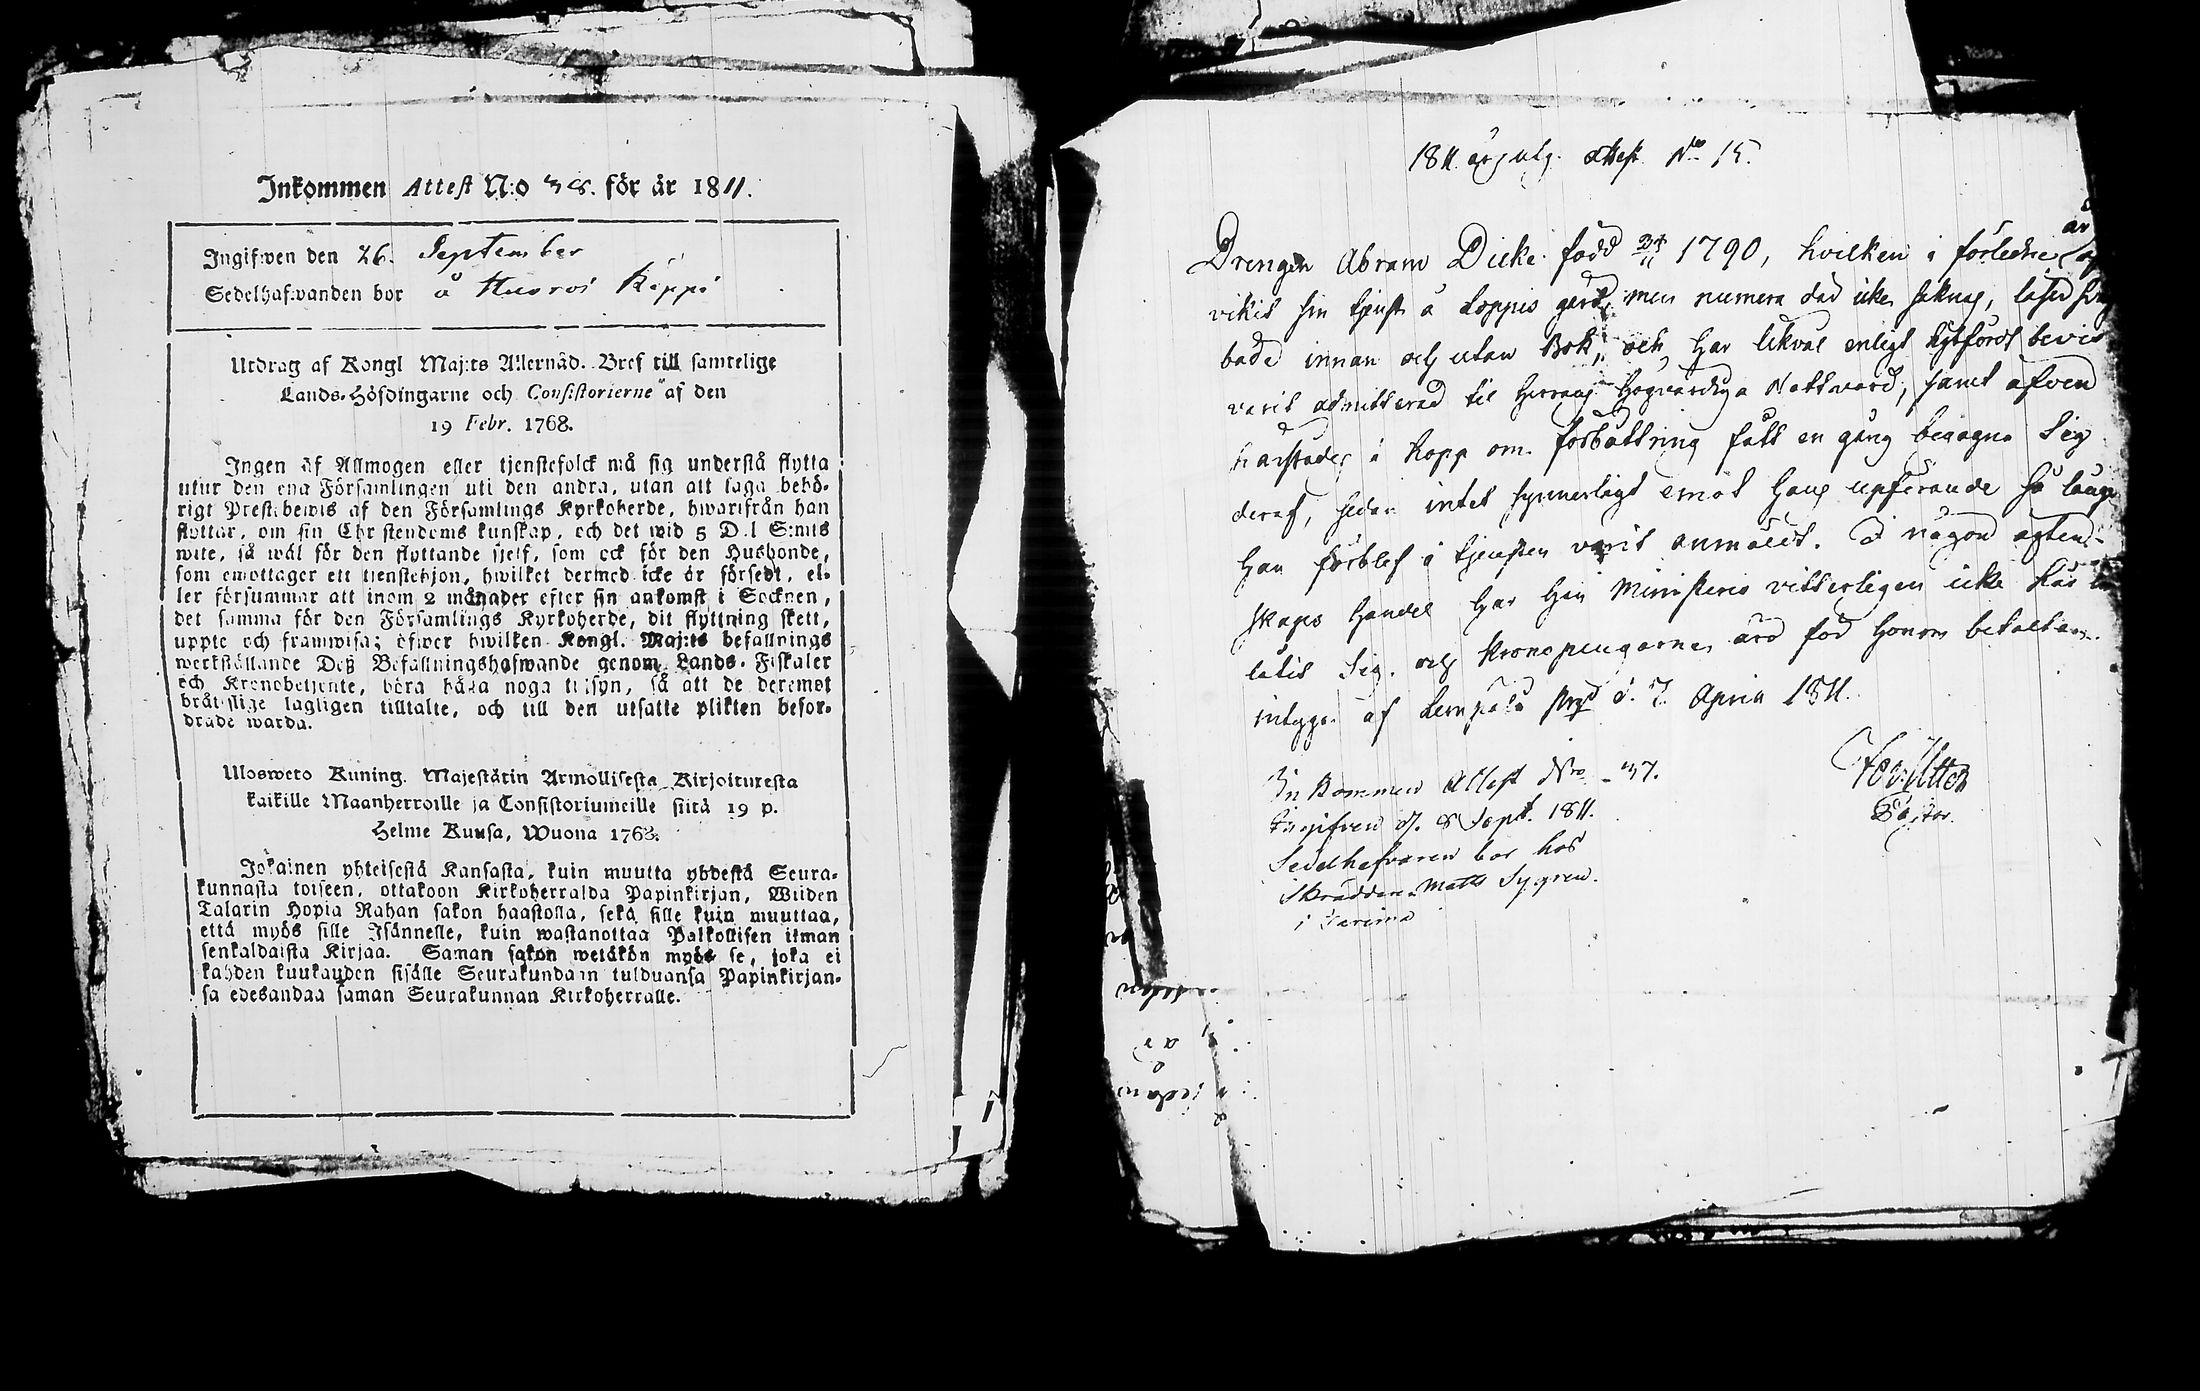 Inkommen Attest N:o 38. för år 1811.
Ingifwen den 26. September
Sedelhafwanden bor å Kuoroi Käppi
Utdrag af Kongl Maj:ts Allernåd. Bref till samtelige
Lands-Höfdingarne och Consistorierne af den
19 Febr. 1768.
Ingen af Allmogen eller tjenstefolck må sig understå flytta
utur den ena Församlingen uti den andra, utan att taga behö-
rigt Prestebewis af den Församlings Kyrkoherde, hwarifrån han
flyttar, om sin Christendoms kunskap, och det wid 5 D:l S:mts
wite, så wäl för den flyttande sjelf, som ock för den Husbonde,
som emottager ett tjenstehjon, hwilket dermed icke är försedt, el-
ler försummar att inom 2 månader efter sin ankomst i Socknen,
det samma för den Församlings Kyrkoherde, dit flyttning skett,
uppte och framwisa; öfwer hwilken Kongl. Maj:ts befallnings
werkställande Deß Befallningshafwande genom Lands-Fiskaler
och Kronobetjente, böra hafwa noga tilsyn, så att de deremot
bråtslige lagligen tilltalte, och till den utsatte plikten befor-
drade warda.
Ulosweto Kuning. Majestätin Armollisesta Kirjoituresta
kaikille Maanherroille ja Consistoriumeille siitä 19 p.
Helme Kuusa, Wuona 1768.
Jokainen yhteisestä Kansasta, kuin muutta yhdestä Seura-
kunnasta toiseen, ottakoon Kirkoherralda Papinkirjan, Wiiden
Talarin Hopia Rahan sakon haastolla, sekä sille kuin muuttaa,
että myös sille Isännelle, kuin wastanottaa Palkollisen ilman
senkaldaista Kirjaa. Saman sakon wetäkön myös se, joka ei
kahden kuukauden sisälle Seurakundaan tulduansa Papinkirjan-
sa edesandaa saman Seurakunnan Kirkoherralle.
1811 års utg. Attest No 15.
Drengen Abram Dicke född 24/11 1790, hvilken i förledne år
vikit sin tjenst å Loppis gård men numera där icke saknas, läser
både innan och utan Bok, och har likväl enligt hitfördt bevis
varit admitterad til Herrans Högvärdiga Nattvard, samt äfven
härstädes i hopp om förbättring fått en gång begagna Sig
deraf, sedan intet synnerligt emot hans upförande så länge
han förblef i tjensten varit anmäldt. I någon ägten-
skaps handel har han Ministerio vitterligen icke här
låtit Sig. och Kronopengarne äro för honom betalta.
intygar af Lempälä Prgd d. 7. April 1811.
Pastor.
Inkommen Attest Nro 37.
Ingifven d. 8 Sept. 1811.
Sedelhafvaren bor hos
Skräddare Matts Sygren.
i